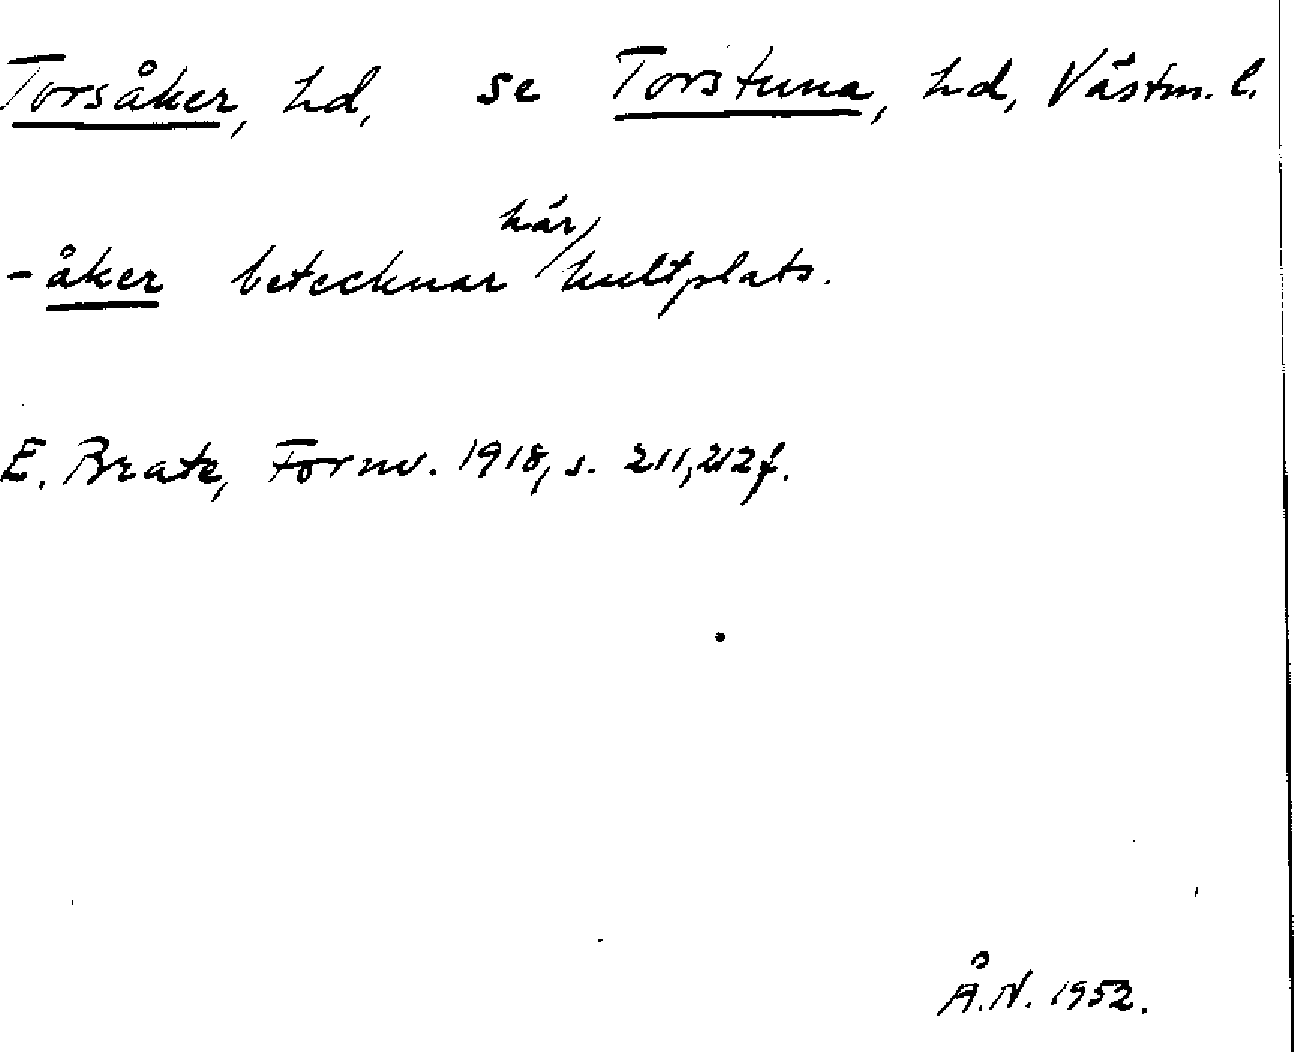 Torsåker, hd, se Torstuna, hd, Västm. l.
-åker betecknar här kultplats.
E. Brate, Fornv. 1918, s. 211, 212 f.
Å.N. 1952.